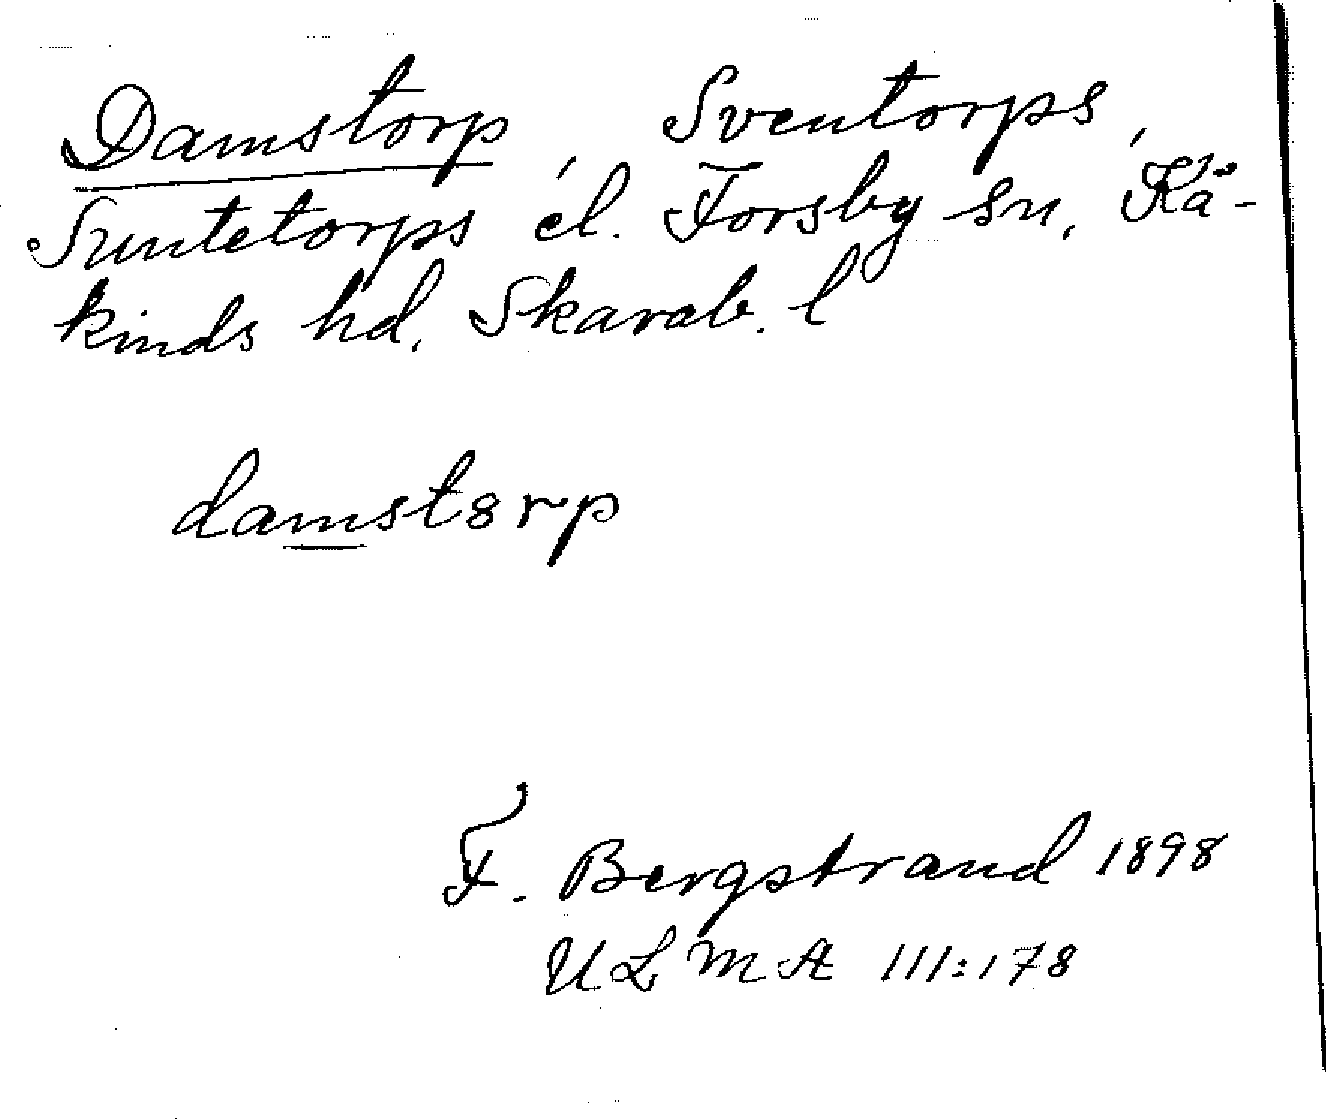 Damstorp, Sventorps,
Suntetorps el. Forsby sn, Kå-
kinds hd, Skarab. l
damst8rp
F. Bergstrand 1898
ULMA 111:178